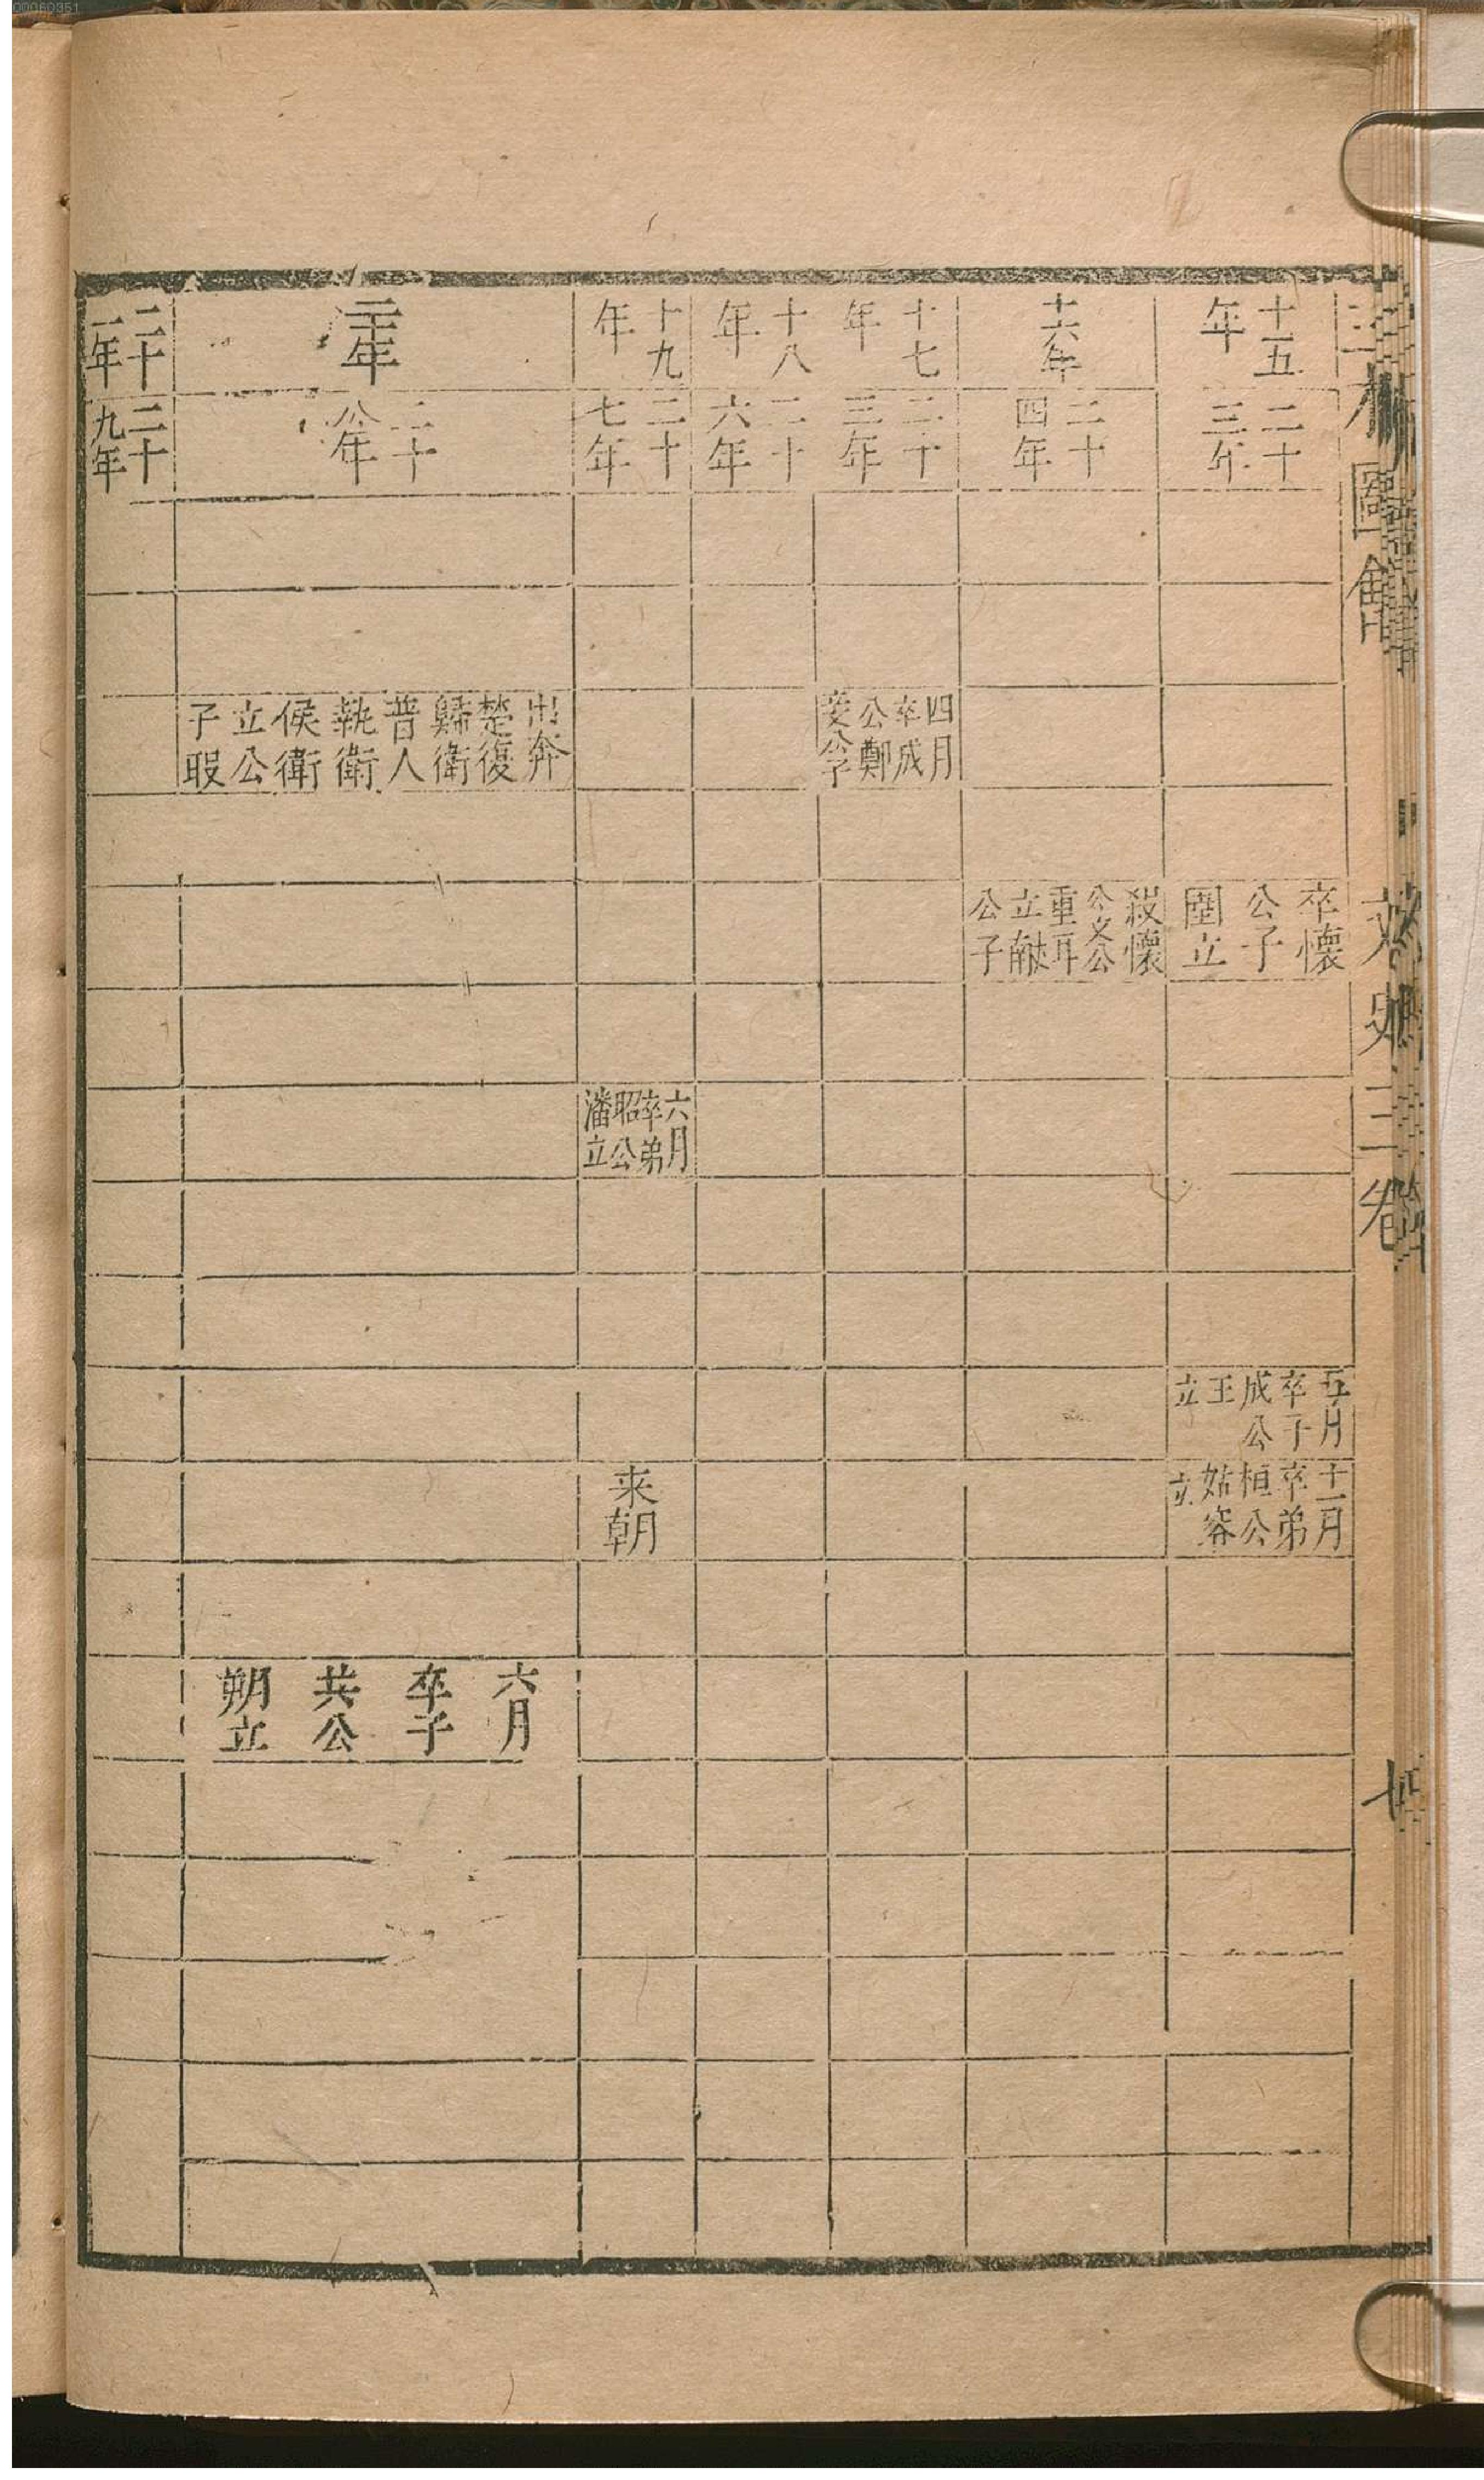 00060351
三才圖會
文史三卷
十五
年
二十
三年
卒懷
公子
圉立
五月
卒子
成公
王
立
十一月
卒弟
桓公
姑容
立
十六年
二十
四年
殺懷
公文公
重耳
立献
公子
十七
年
二十
三年
四月
卒成
公鄭
公子
十八
年
二十
六年
十九
年
二十
七年
六月
卒弟
昭公
潘立
来朝
二十年
二十
八年
出奔
楚復
歸衛
普人
執衛
侯衛
立公
子瑕
六月
卒子
共公
朔立
二十
一年
二十
九年